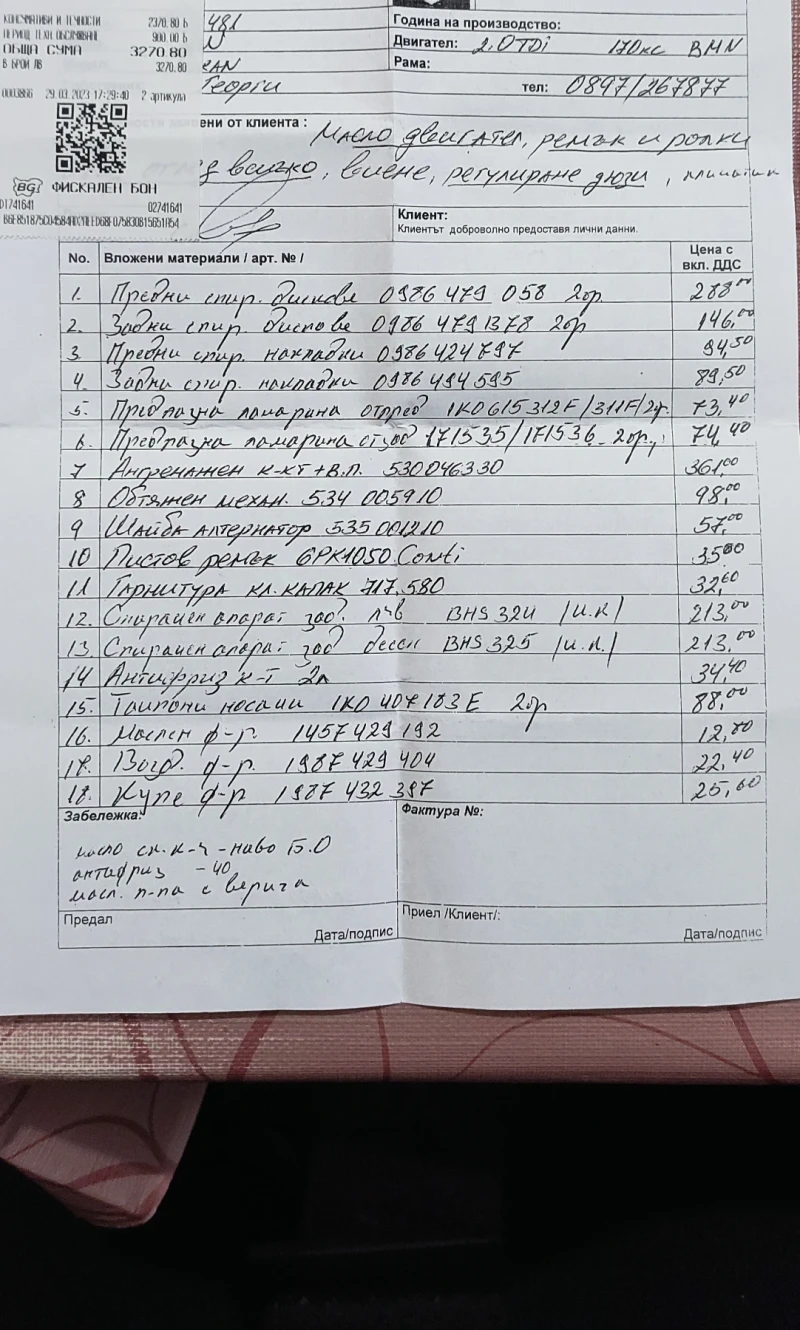 КОНСУМАТИВИ И ТЕЧНОСТИ 2370.80 Б
900.00 Б
ОБЩА СУМА 3270.80
В БРОЙ ЛВ 3270.80
0003866 29.03.2023 17:29:40 2 артикула
BGi ФИСКАЛЕН БОН
02741641
481
Георги
Година на производство:
Двигател: 2.0TDi 170кс BMN
Рама:
тел: 0897/267877
ени от клиента :
Масло двигател, ремък и ролки
всичко, виене, регулиране дюзи,
Клиент:
Клиентът доброволно предоставя лични данни.
No. Вложени материали / арт. № / Цена с вкл. ДДС
1. Предни спир. дискове 0986 479 058 2бр 288,00
2. Задни спир. дискове 0986 479 В78 2бр 146,00
3. Предни спир. накладки 0986424797 94,50
4. Задни спир. накладки 0986 494 595 89,50
5. Предпазна ламарина отпред 1K0615312F/311F/2бр. 73,40
6. Предпазна ламарина отзад 171535/171536 2бр., 74,40
7 Ангренажен к-кт+в.п. 530046330 361,00
8 Обтяжен механ. 534 005910 98,00
9 Шайба алтернатор 535001210 57,00
10 Пистов ремък 6PK1050 Conti 35,80
11 Гарнитура кл. капак 717.580 32,60
12. Спирачен апарат зад. ляв BHS 324 /и.к/ 213,00
13. Спирачен апарат зад десен BHS 325 /и.к./ 213,00
14 Антифриз к-т 2л 34,40
15. Тампони носачи 1K0 407 183 E 2бр 88,00
16. Маслен ф-р. 1457 429 192 12,80
17. Возд. ф-р. 1987 429 404 22,40
18. Купе ф-р 1987 432 397 25,60
Забележка:
масло ск. к-я - ниво Б.О
антифриз -40
масл. п-па с верига
Фактура №:
Предал
Дата/подпис
Приел /Клиент/:
Дата/подпис